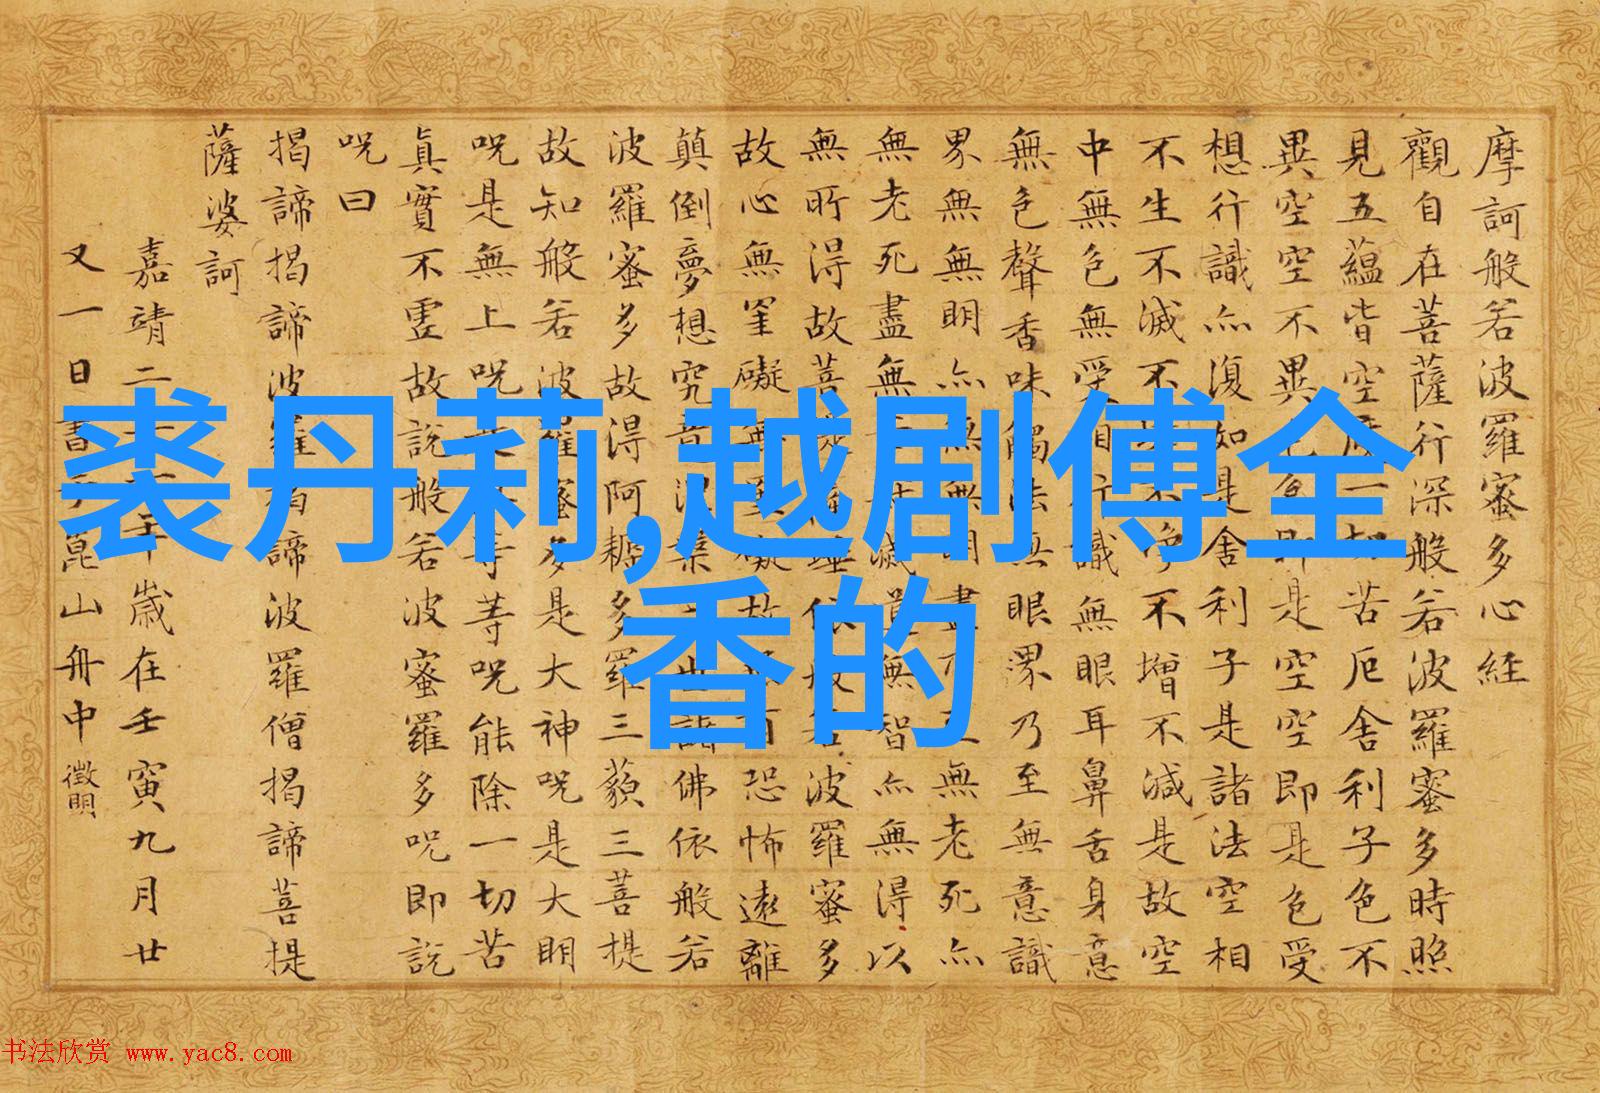 摩訶般若波羅蜜多心経
觀自在菩薩行深般若波羅蜜多時照
見五蘊皆空度一切苦厄舍利子色不
異空空不異色即是空空即是色受
想行識亦復如是舍利子是諸法空相
不生不滅不垢不淨不增不減是故空
中無色無受想行識無眼耳鼻舌身意
無色聲香味觸法無眼界乃至無意識
界無無明亦無無明盡乃至無老死亦
無老死盡無苦集滅道無智亦無得以
無所得故菩提薩埵依般若波羅蜜多
故心無罣礙無罣礙故無有恐怖遠離
顛倒夢想究竟涅槃三世諸佛依般若
波羅蜜多故得阿耨多羅三藐三菩提
故知般若波羅蜜多是大神呪是大明
呪是無上呪是無等等呪能除一切苦
真實不虛故說般若波羅蜜多呪即說
呪曰
揭諦揭諦波羅揭諦波羅僧揭諦菩提
薩婆訶
嘉靖二十一年歲在壬寅九月廿
又一日書于崑山舟中 徵明
裘丹莉,越剧傅全
香的
书法欣赏 www.yac8.com